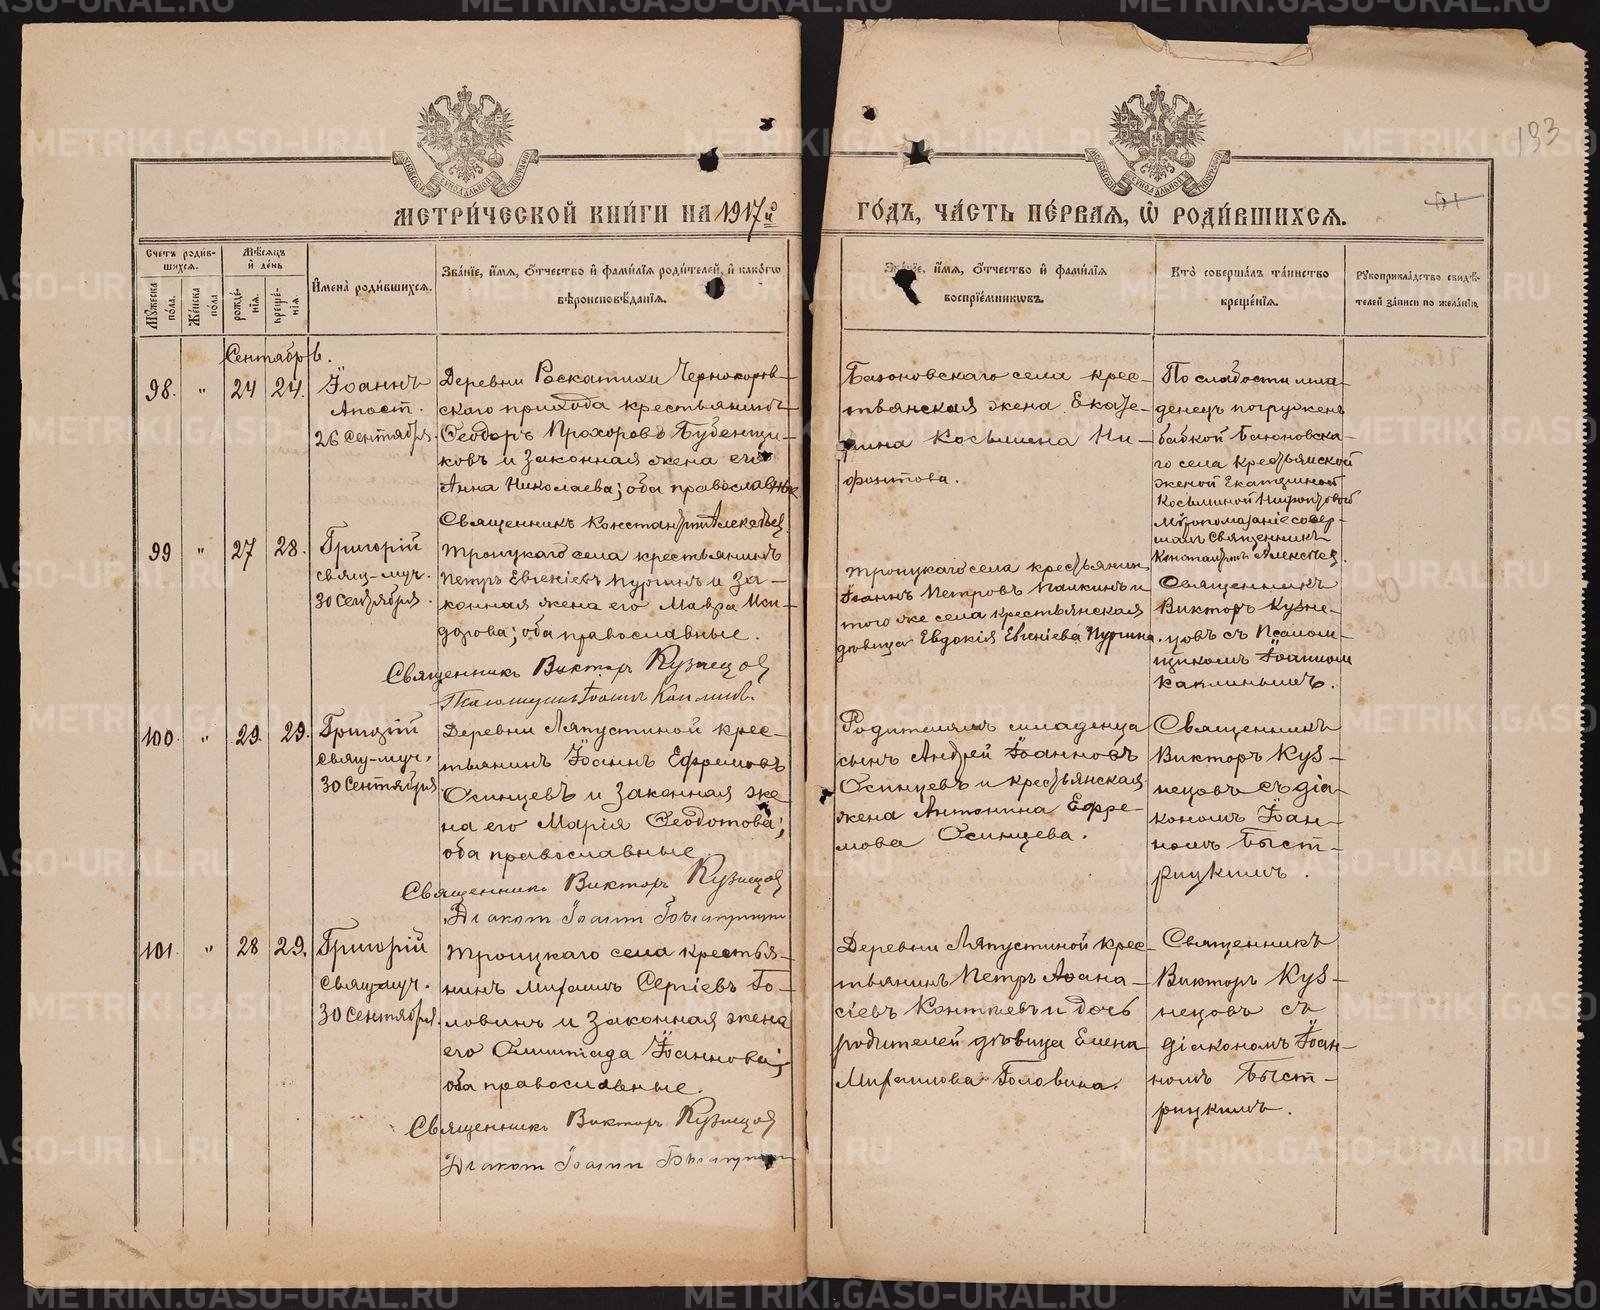 МЕТРИ́ЧЕСКОЙ КНИ́ГИ НА 1917й
ГО́ДЪ, ЧА́СТЬ ПЕ́РВАЯ, Ѡ҆ РОДИ́ВШИХСЯ.
193
Счетъ роди́вшихся.
Му́жеска по́ла.
Же́нска по́ла
Мѣ́сяцъ и҆ де́нь
рожде́нїя.
креще́нїя.
И҆мена̀ роди́вшихся.
Зва́нїе, и҆́мя, ѻ҆́тчество и҆ фамі́лїя роди́телей, и҆ како́гѡ
вѣроисповѣ́данїя.
Зва́нїе, и҆́мя, ѻ҆́тчество и҆ фамі́лїя
воспрїе́мникѡвъ.
Кто̀ соверша́лъ та́инство
креще́нїя.
Рукоприкла́дство свидѣ́-
телей за́писи по жела́нїю
Сентябрь.
98. " 24 24.
Іоаннъ
Апост.
26 Сентября.
Деревни Роскатихи Чернокоров-
скаго прихода крестьянинъ
Ѳеодоръ Прохоровъ Бубенщи-
ковъ и законная жена его
Анна Николаева; оба православные
Священникъ Константинъ Алексѣев
Баженовскаго села крес-
тьянская жена Екате-
рина Косьмина Ни-
фонтова.
По слабости мла-
денецъ погруженъ
бабкой Баженовска-
го села крестьянской
женой Екатериной
Косьминой Нифонтовой
Мѵропомазаніе совер-
шалъ Священникъ
Константинъ Алексѣев.
99 " 27 28.
Григорій
свящ-муч.
30 Сентября.
Троицкаго села крестьянинъ
Петръ Евгеніевъ Пургинъ и за-
конная жена его Мавра Иси-
дорова; оба православные.
Священникъ Викторъ Кузнецов
Псаломщикъ Іоаннъ Каплинъ.
Троицкаго села крестьянин
Іоаннъ Петровъ Палкинъ и
того же села крестьянская
дѣвица Евдокія Евгеніева Пургина.
Священникъ
Викторъ Кузне-
цовъ съ Псалом-
щикомъ Іоанном
Каплинымъ.
100. " 29. 29.
Григорій
свящ-муч.
30 Сентября
Деревни Ляпустиной крес-
тьянинъ Іоаннъ Ефремовъ
Осинцевъ и законная же-
на его Марія Ѳеодотова;
оба православные.
Священникъ Викторъ Кузнецов
Діакон Іоанн Быстрицкий
Родителямъ младенца
сынъ Андрей Іоанновъ
Осинцевъ и крестьянская
жена Антонина Ефре-
мова Осинцева.
Священникъ
Викторъ Куз-
нецовъ съ діа-
кономъ Іоан-
номъ Быст-
рицкимъ.
101. " 28 29.
Григорій
свящ-муч.
30 Сентября.
Троицкаго села крестья-
нинъ Михаилъ Сергіевъ Го-
ловинъ и законная жена
его Олимпіада Іоаннова;
оба православные.
Священникъ Викторъ Кузнецов
Діакон Іоанн Быстрицкий
Деревни Ляпустиной крес-
тьянинъ Петръ Аѳана-
сіевъ Контіевъ и дочь
родителей дѣвица Елена
Михаилова Головина.
Священникъ
Викторъ Куз-
нецовъ съ
діакономъ Іоан-
номъ Быст-
рицкимъ.
METRIKI.GASO-URAL.RU